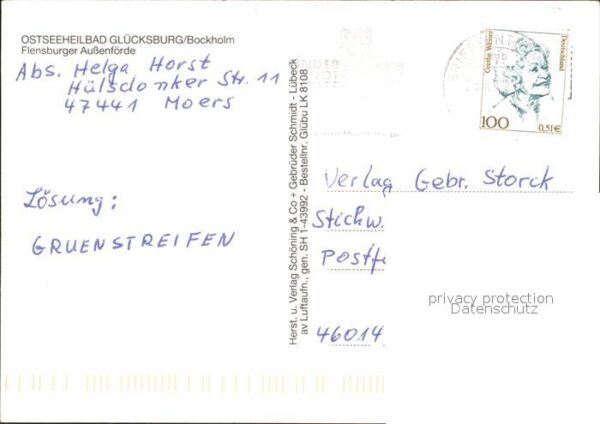 OSTSEEHEILBAD GLÜCKSBURG/Bockholm
Flensburger Außenförde
Abs. Helga Horst
Hülsdonker Str. 11
47441 Moers
Lösung:
GRUENSTREIFEN
Herst. u. Verlag Schöning & Co + Gebrüder Schmidt - Lübeck
av Luftaufn., gen. SH 1-43992 - Bestellnr. Glübu LK 8108
Grethe Weiser
Deutschland
100
0,51€
Verlag Gebr. Storck
Stichw.
Postf
46014
privacy protection
Datenschutz